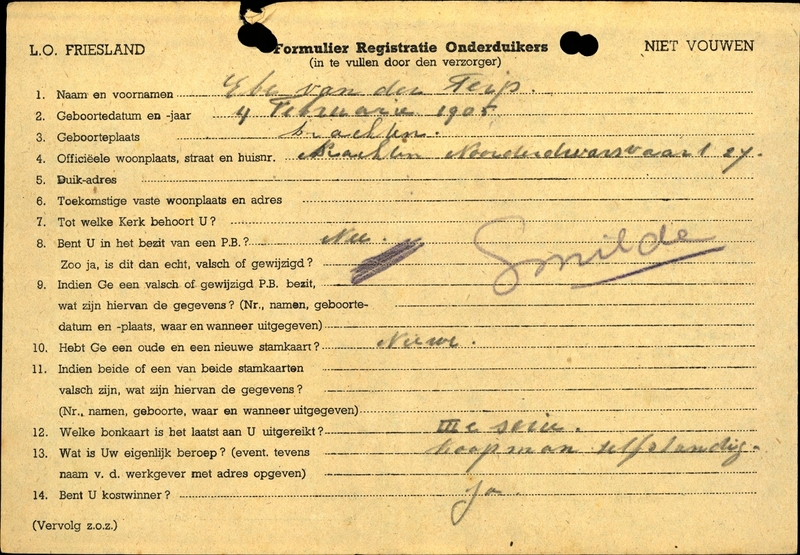 L.O. FRIESLAND
Formulier Registratie Onderduikers
NIET VOUWEN
(in te vullen door den verzorger)
1. Naam en voornamen Ebe van der Terp.
2. Geboortedatum en -jaar 4 Februarie 1905
3. Geboorteplaats Drachten.
4. Officiëele woonplaats, straat en huisnr. Drachten Noorderdwarsvaart 27.
5. Duik-adres
6. Toekomstige vaste woonplaats en adres
7. Tot welke Kerk behoort U?
8. Bent U in het bezit van een P.B.? Nee.
Zoo ja, is dit dan echt, valsch of gewijzigd?
Smilde
9. Indien Ge een valsch of gewijzigd P.B. bezit,
wat zijn hiervan de gegevens? (Nr., namen, geboorte-
datum en -plaats, waar en wanneer uitgegeven)
10. Hebt Ge een oude en een nieuwe stamkaart? Nieuwe.
11. Indien beide of een van beide stamkaarten
valsch zijn, wat zijn hiervan de gegevens?
(Nr., namen, geboorte, waar en wanneer uitgegeven)
12. Welke bonkaart is het laatst aan U uitgereikt? IIIe serie.
13. Wat is Uw eigenlijk beroep? (event. tevens koopman selfstandig.
naam v. d. werkgever met adres opgeven)
14. Bent U kostwinner? ja
(Vervolg z.o.z.)